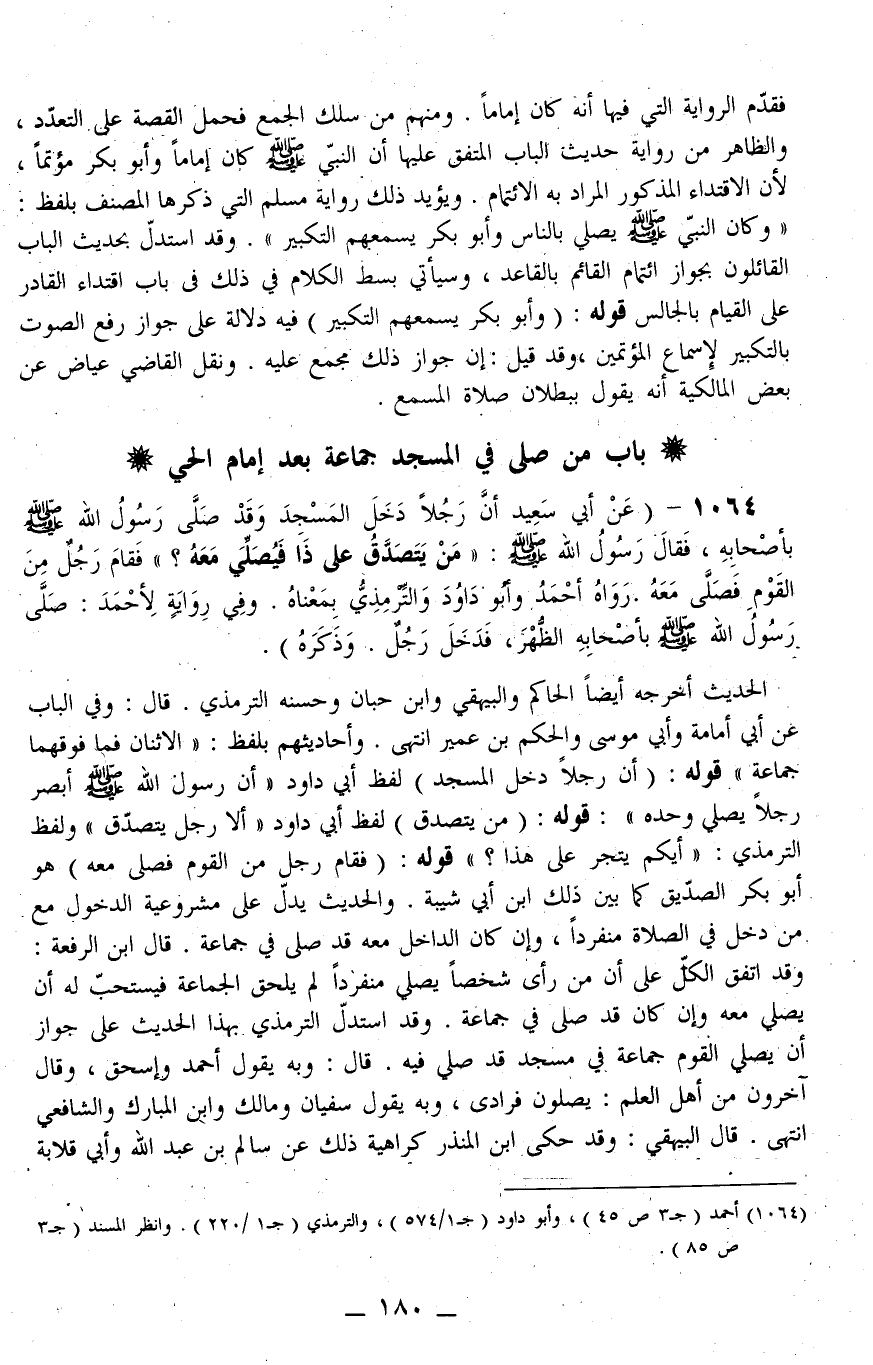 فقدّم الرواية التي فيها أنه كان إماماً . ومنهم من سلك الجمع فحمل القصة على التعدّد ،
والظاهر من رواية حديث الباب المتفق عليها أن النبيّ ﷺ كان إماماً وأبو بكر مؤتماً ،
لأن الاقتداء المذكور المراد به الائتمام . ويؤيد ذلك رواية مسلم التي ذكرها المصنف بلفظ :
« وكان النبيّ ﷺ يصلي بالناس وأبو بكر يسمعهم التكبير » . وقد استدلّ بحديث الباب
القائلون بجواز ائتمام القائم بالقاعد ، وسيأتي بسط الكلام في ذلك فى باب اقتداء القادر
على القيام بالجالس قوله : ( وأبو بكر يسمعهم التكبير ) فيه دلالة على جواز رفع الصوت
بالتكبير لإسماع المؤتمين ،وقد قيل : إن جواز ذلك مجمع عليه . ونقل القاضي عياض عن
بعض المالكية أنه يقول ببطلان صلاة المسمع .
❋ باب من صلى في المسجد جماعة بعد إمام الحي ❋
١٠٦٤ – ( عَنْ أبي سَعِيد أنَّ رَجُلاً دَخَلَ المَسْجِدَ وَقَدْ صَلَّى رَسُولُ الله ﷺ
بأصْحابِهِ ، فَقالَ رَسُولُ الله ﷺ : « مَنْ يَتَصَدَّقُ على ذَا فَيُصَلِّي مَعَهُ ؟ » فَقامَ رَجُلٌ مِنَ
القَوْمِ فَصَلَّى مَعَهُ .رَوَاهُ أحْمَدُ وأَبُو دَاوُدَ وَالتِّرْمِذِيُّ بِمَعْناهُ . وفِي رِوَايَةٍ لِأحْمَدَ : صَلَّى
رَسُولُ الله ﷺ بأصْحابِهِ الظُّهْرَ ، فَدَخَلَ رَجُلٌ . وَذَكَرَهُ ) .
الحديث أخرجه أيضاً الحاكم والبيهقي وابن حبان وحسنه الترمذي . قال : وفي الباب
عن أبي أمامة وأبي موسى والحكم بن عمير انتهى . وأحاديثهم بلفظ : « الاثنان فما فوقهما
جماعة » قوله : ( أن رجلاً دخل المسجد ) لفظ أبي داود « أن رسول الله ﷺ أبصر
رجلاً يصلي وحده » : قوله : ( من يتصدق ) لفظ أبي داود « ألا رجل يتصدّق » ولفظ
الترمذي : « أيكم يتجر على هذا ؟ » قوله : ( فقام رجل من القوم فصلى معه ) هو
أبو بكر الصدّيق كما بين ذلك ابن أبي شيبة . والحديث يدلّ على مشروعية الدخول مع
من دخل في الصلاة منفرداً ، وإن كان الداخل معه قد صلى في جماعة . قال ابن الرفعة :
وقد اتفق الكلّ على أن من رأى شخصاً يصلي منفرداً لم يلحق الجماعة فيستحبّ له أن
يصلي معه وإن كان قد صلى في جماعة . وقد استدلّ الترمذي بهذا الحديث على جواز
أن يصلي القوم جماعة في مسجد قد صلي فيه . قال : وبه يقول أحمد وإسحق ، وقال
آخرون من أهل العلم : يصلون فرادى ، وبه يقول سفيان ومالك وابن المبارك والشافعي
انتهى . قال البيهقي : وقد حكى ابن المنذر كراهية ذلك عن سالم بن عبد الله وأبي قلابة
(١٠٦٤) أحمد ( جـ٣ ص ٤٥ ) ، وأبو داود ( جـ١/٥٧٤ ) ، والترمذي ( جـ١ /٢٢٠ ) . وانظر المسند ( جـ٣
ص ٨٥ ) .
— ١٨٠ —